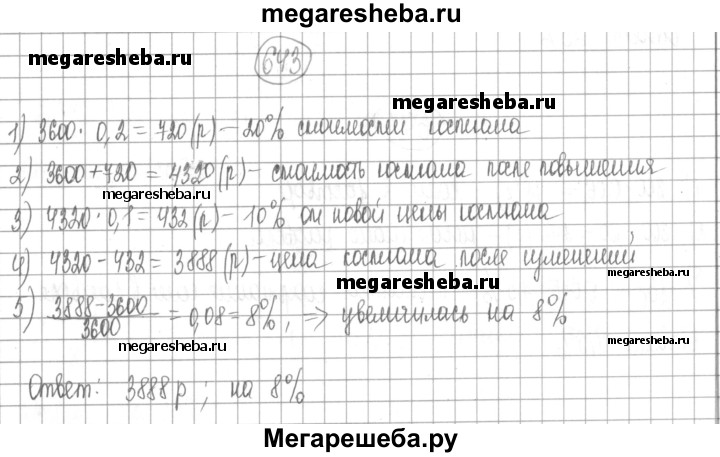 megaresheba.ru
megaresheba.ru
643
megaresheba.ru
1) 3600 · 0,2 = 720 (р) – 20% стоимости костюма
2) 3600 + 720 = 4320 (р) – стоимость костюма после повышения
megaresheba.ru
3) 4320 · 0,1 = 432 (р) – 10% от новой цены костюма
4) 4320 – 432 = 3888 (р) – цена костюма после изменений
megaresheba.ru
megaresheba.ru
5) 3888 – 3600 / 3600 = 0,08 = 8%, ⇒ увеличилась на 8%
megaresheba.ru
megaresheba.ru
Ответ: 3888 р ; на 8%
Мегарешеба.ру